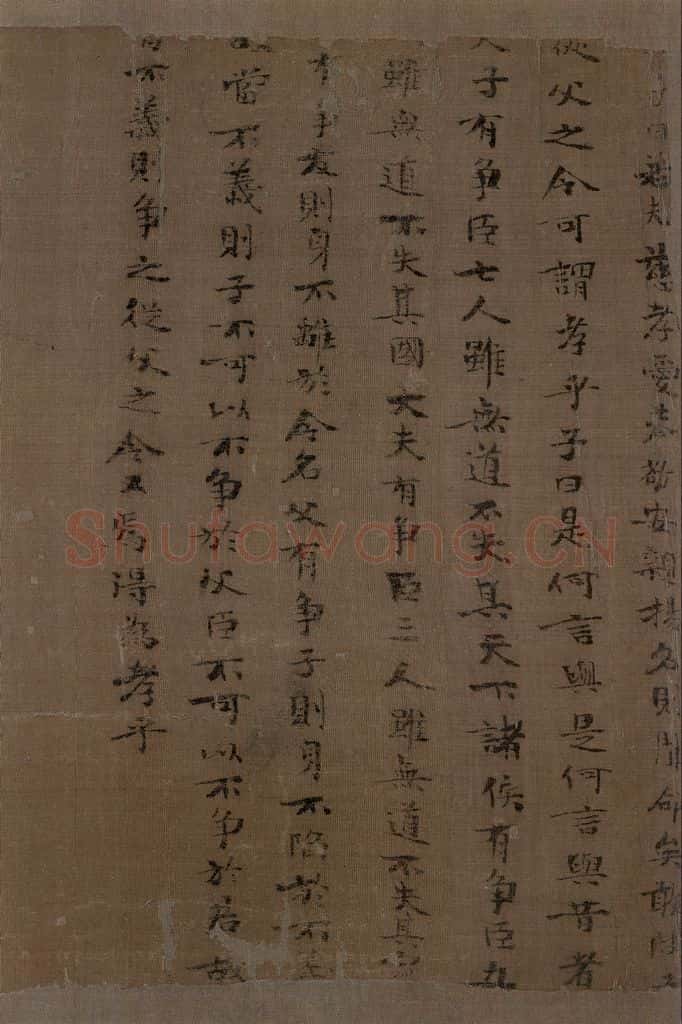 子曰若夫慈孝愛恭敬安親揚名則聞命矣敢問子
從父之令可謂孝乎子曰是何言與是何言與昔者
天子有争臣七人雖無道不失其天下諸侯有争臣五
雖無道不失其國大夫有争臣三人雖無道不失其家
有争友則身不離於令名父有争子則身不陷於不義
故當不義則子不可以不争於父臣不可以不争於君故
當不義則争之從父之令又焉得為孝乎
Shufawang.CN